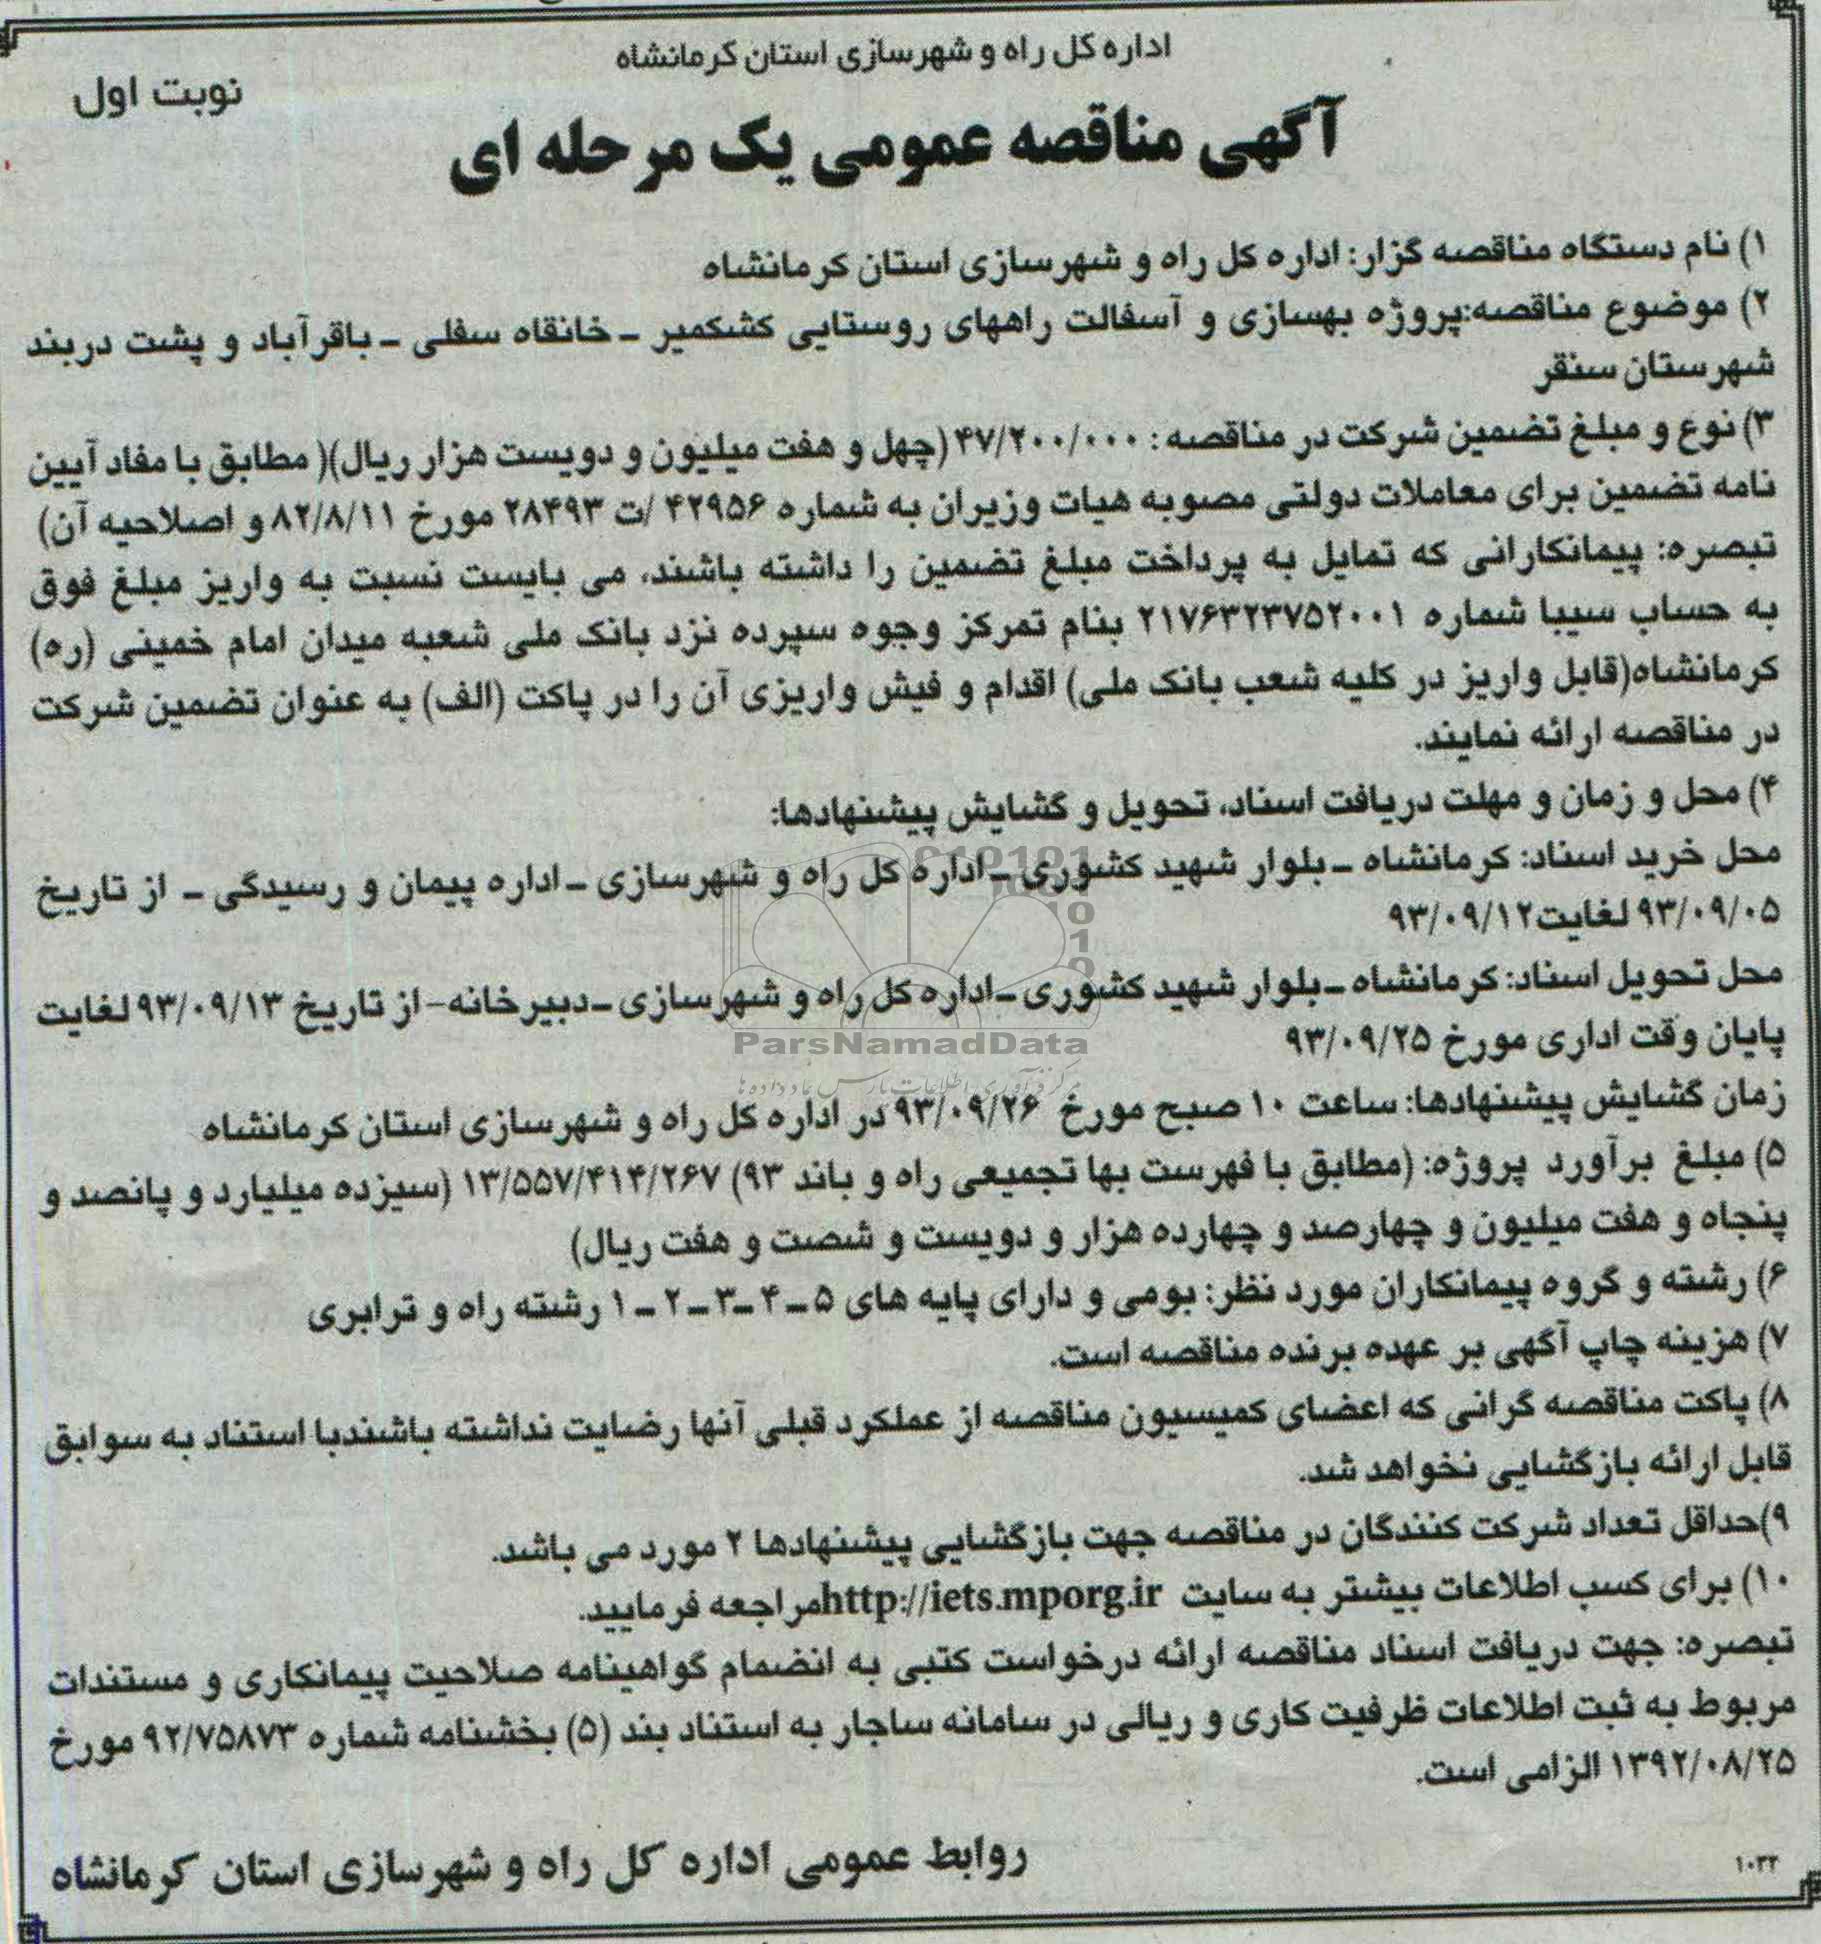 اداره کل راه و شهرسازی استان کرمانشاه
نوبت اول
آگهی مناقصه عمومی یک مرحله ای
۱) نام دستگاه مناقصه گزار: اداره کل راه و شهرسازی استان کرمانشاه
۲) موضوع مناقصه:پروژه بهسازی و آسفالت راههای روستایی کشکمیر ـ خانقاه سفلی ـ باقرآباد و پشت دربند
شهرستان سنقر
۳) نوع و مبلغ تضمین شرکت در مناقصه : ۴۷/۲۰۰/۰۰۰ (چهل و هفت میلیون و دویست هزار ریال)( مطابق با مفاد آیین
نامه تضمین برای معاملات دولتی مصوبه هیات وزیران به شماره ۴۲۹۵۶ /ت ۲۸۴۹۳ مورخ ۸۲/۸/۱۱ و اصلاحیه آن)
تبصره: پیمانکارانی که تمایل به پرداخت مبلغ تضمین را داشته باشند، می بایست نسبت به واریز مبلغ فوق
به حساب سیبا شماره ۲۱۷۶۳۲۳۷۵۲۰۰۱ بنام تمرکز وجوه سپرده نزد بانک ملی شعبه میدان امام خمینی (ره)
کرمانشاه(قابل واریز در کلیه شعب بانک ملی) اقدام و فیش واریزی آن را در پاکت (الف) به عنوان تضمین شرکت
در مناقصه ارائه نمایند.
۴) محل و زمان و مهلت دریافت اسناد، تحویل و گشایش پیشنهادها:
محل خرید اسناد: کرمانشاه ـ بلوار شهید کشوری ـ اداره کل راه و شهرسازی ـ اداره پیمان و رسیدگی ـ از تاریخ
۹۳/۰۹/۰۵ لغایت ۹۳/۰۹/۱۲
محل تحویل اسناد: کرمانشاه ـ بلوار شهید کشوری ـ اداره کل راه و شهرسازی ـ دبیرخانه- از تاریخ ۹۳/۰۹/۱۳ لغایت
پایان وقت اداری مورخ ۹۳/۰۹/۲۵
ParsNamadData
مرکز فرآوری اطلاعات پارس نماد داده ها
زمان گشایش پیشنهادها: ساعت ۱۰ صبح مورخ ۹۳/۰۹/۲۶ در اداره کل راه و شهرسازی استان کرمانشاه
۵) مبلغ برآورد پروژه: (مطابق با فهرست بها تجمیعی راه و باند ۹۳) ۱۳/۵۵۷/۴۱۴/۲۶۷ (سیزده میلیارد و پانصد و
پنجاه و هفت میلیون و چهارصد و چهارده هزار و دویست و شصت و هفت ریال)
۶) رشته و گروه پیمانکاران مورد نظر: بومی و دارای پایه های ۵ ـ ۴ ـ ۳ ـ ۲ ـ ۱ رشته راه و ترابری
۷) هزینه چاپ آگهی بر عهده برنده مناقصه است.
۸) پاکت مناقصه گرانی که اعضای کمیسیون مناقصه از عملکرد قبلی آنها رضایت نداشته باشندبا استناد به سوابق
قابل ارائه بازگشایی نخواهد شد.
۹)حداقل تعداد شرکت کنندگان در مناقصه جهت بازگشایی پیشنهادها ۲ مورد می باشد.
۱۰) برای کسب اطلاعات بیشتر به سایت http://iets.mporg.irمراجعه فرمایید.
تبصره: جهت دریافت اسناد مناقصه ارائه درخواست کتبی به انضمام گواهینامه صلاحیت پیمانکاری و مستندات
مربوط به ثبت اطلاعات ظرفیت کاری و ریالی در سامانه ساجار به استناد بند (۵) بخشنامه شماره ۹۲/۷۵۸۷۳ مورخ
۱۳۹۲/۰۸/۲۵ الزامی است.
روابط عمومی اداره کل راه و شهرسازی استان کرمانشاه
۱۰۳۲